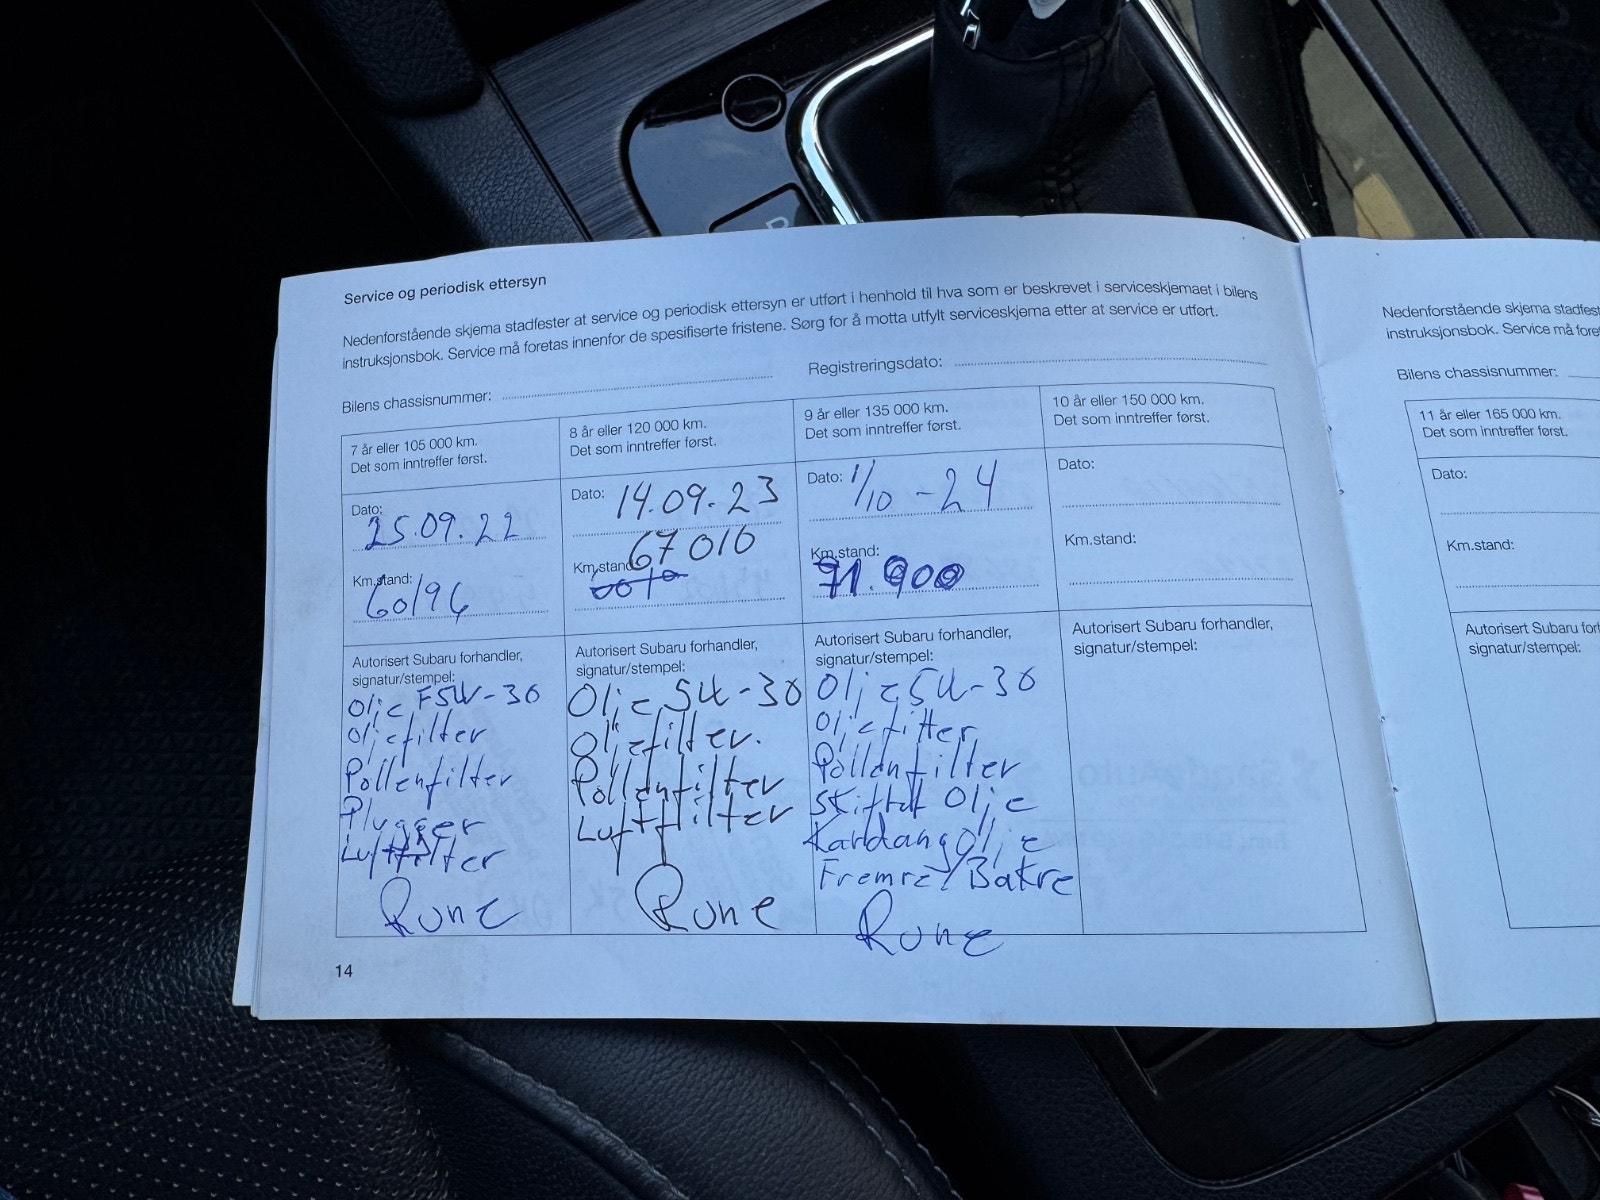 Service og periodisk ettersyn
Nedenforstående skjema stadfester at service og periodisk ettersyn er utført i henhold til hva som er beskrevet i serviceskjemaet i bilens
instruksjonsbok. Service må foretas innenfor de spesifiserte fristene. Sørg for å motta utfylt serviceskjema etter at service er utført.
Bilens chassisnummer:
Registreringsdato:
7 år eller 105 000 km.
Det som inntreffer først.
Dato:
25.09.22
Km.stand:
60196
Autorisert Subaru forhandler,
signatur/stempel:
Olje F5W-30
Oljefilter
Pollenfilter
Plugger
Luftfilter
Rune
8 år eller 120 000 km.
Det som inntreffer først.
Dato: 14.09.23
67010
Km.stand:
Autorisert Subaru forhandler,
signatur/stempel:
Olje 5W-30
Oljefilter.
Pollenfilter
Luftfilter
Rune
9 år eller 135 000 km.
Det som inntreffer først.
Dato: 1/10-24
Km.stand:
71.900
Autorisert Subaru forhandler,
signatur/stempel:
Olje 5W-30
Oljefilter
Pollenfilter
Skiftet Olje
Kardang Olje
Fremre/Bakre
Rune
10 år eller 150 000 km.
Det som inntreffer først.
Dato:
Km.stand:
Autorisert Subaru forhandler,
signatur/stempel:
14
Nedenforstående skjema
instruksjonsbok. Service må
Bilens chassisnummer:
11 år eller 165 000 km.
Det som inntreffer først.
Dato:
Km.stand:
Autorisert Subaru
signatur/stempel: